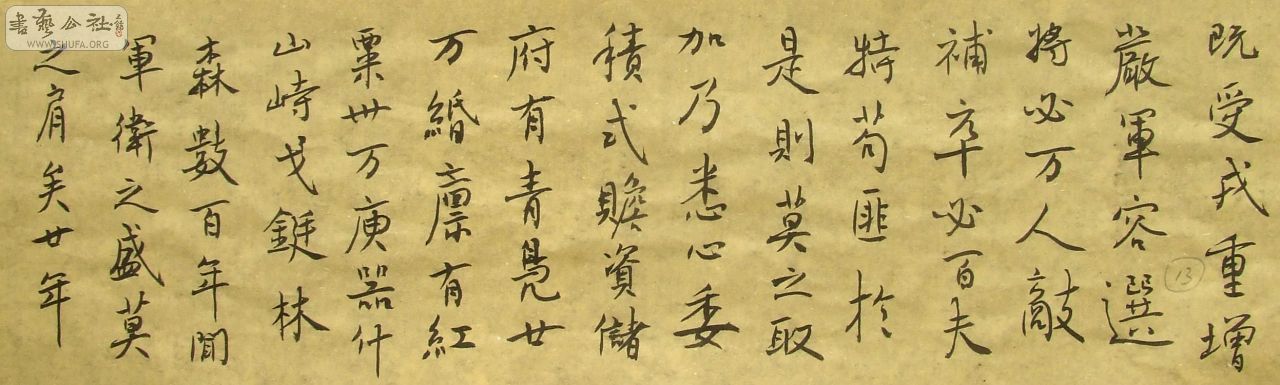 既受戎重增
嚴軍容選
將必万人敵
補卒必百夫
特苟匪於
是則莫之取
加乃悉心委
積式贍資儲
府有青鳧廿
万緡廪有紅
粟卅万庾器什
山峙戈鋋林
森數百年閒
軍衛之盛莫
之肩矣廿年
13
書藝公社
WWW.SHUFA.ORG